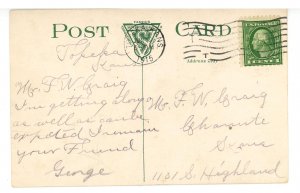 POST CARD
Topeka
Kans
Mr. F. W. Craig
I'm getting along
as well as can be
expected I remain
your Friend
George
KANS
1915
Address Only
1 CENT 1
Mr. F. W. Craig
Chanute
Kans
1101 S. Highland